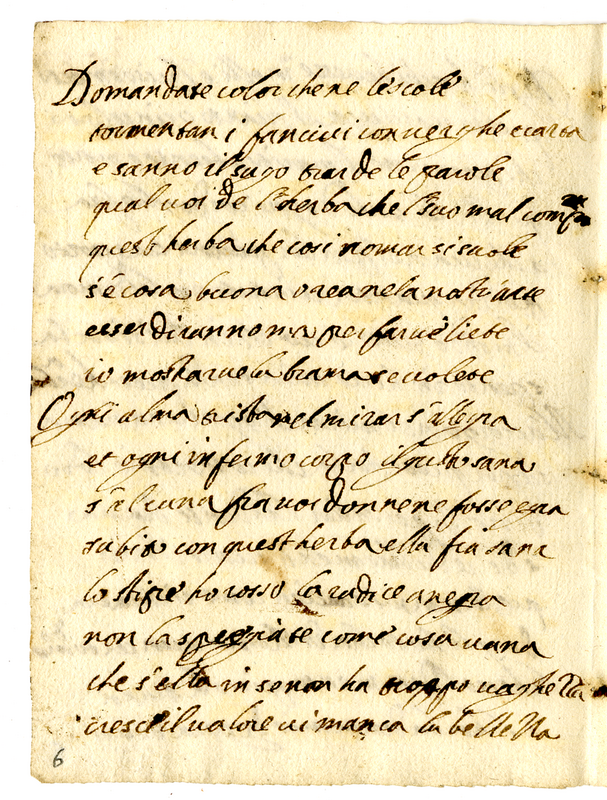 Domandate color che ne le scole
tormentan i fanciui con verghe e carta
e sanno il sugo trar de le parole
qual uoi de l'herba che l'suo mal
quest herba che cosi nomar si suole
s'è cosa buona o rea ne la nostr'arte
esser diranno ma per farue liete
io mostrarue la brama se uolete
Ogni alma trista nel mirar s'allegra
et ogni infermo corpo il gusto sana
s'alcuna fra uoi donne ne fosse egra
subito con quest herba ella fia sana
lo stipite ho rosso la radice a negra
non la spregiate come cosa uana
che s'ella in se non ha troppo uaghezza
cresce il ualore ui manca la bellezza
6